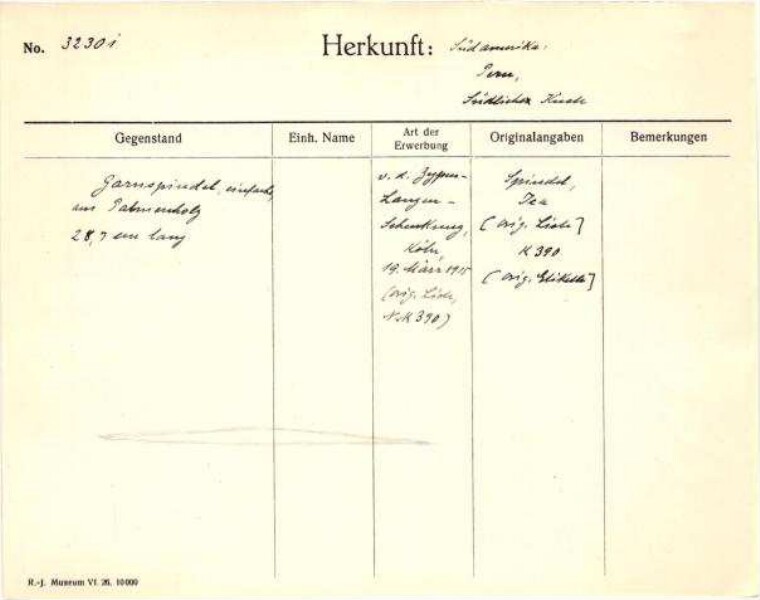 No. 3230i
Herkunft: Südamerika.
Peru,
Südlicher Küste
Gegenstand
Einh. Name
Art der
Erwerbung
Originalangaben
Bemerkungen
Garnspindel, einfache,
aus Palmenholz
28,7 cm lang
v. d. Zypen-
Langen-
Schenkung,
Köln,
19. März 1915
(orig. Liste,
K 390)
Spindel,
Ica
[orig. Liste]
K 390
[orig. Etikette]
R.-J. Museum VI. 26. 10000